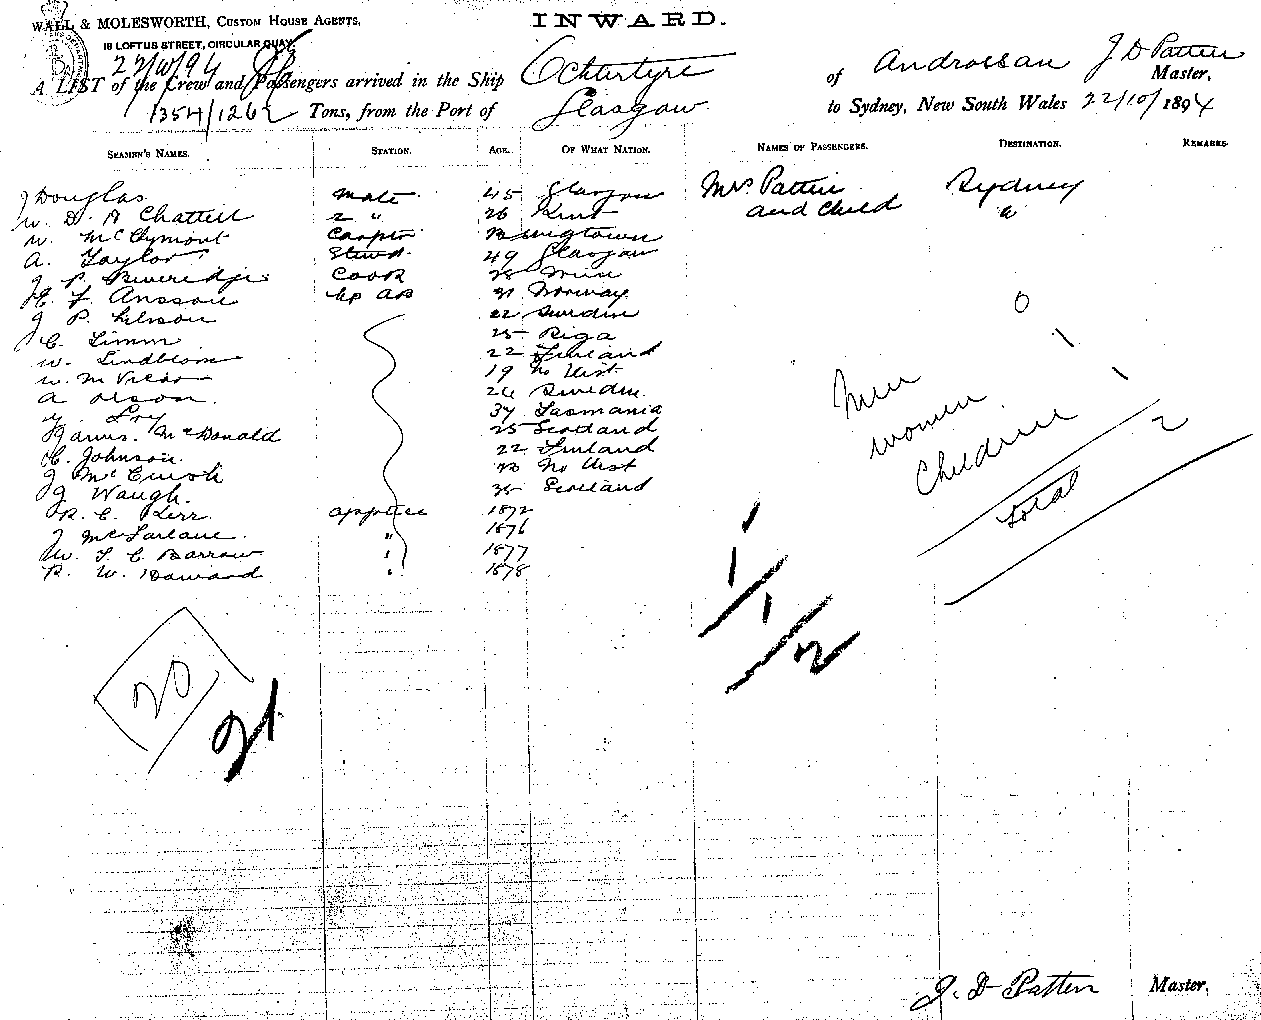 WALL & MOLESWORTH, CUSTOM HOUSE AGENTS,
INWARD.
18 LOFTUS STREET, CIRCULAR QUAY,
22/10/94
A LIST of the Crew and Passengers arrived in the Ship Ochtertyre of Androssan J D Patten Master,
1354/1262 Tons, from the Port of Glasgow to Sydney, New South Wales 22/10/1894
SEAMEN'S NAMES. STATION. AGE. OF WHAT NATION. NAMES OF PASSENGERS. DESTINATION. REMARKS.
J Douglas Mate 45 Glasgow Mrs Patten Sydney
W. D. A Chattell 2 " 26 Kent and Child "
W. McClymont Carptr
A. Taylor Stewd. 49 Glasgow
J P. Cook
F. Ansson AB 31 Norway
J P. 22 Sweden
C. Limm 25 Riga
W. Lindblom 22 Finland
W. M 19 No Vist
A Olson. 26 Sweden.
37 Tasmania
McDonald 25 Scotland
C. Johnson. 22 Finland
J Mc No Vist
J Waugh. 35 Scotland
R. C. Kerr apprtice 1872
J McFarlane. " 1876
W. T. C. Barrow " 1877
R. W. " 1878
Men 0
Women 1
Children 1
Total 2
1
1
2
20
21
J. D Patten Master.